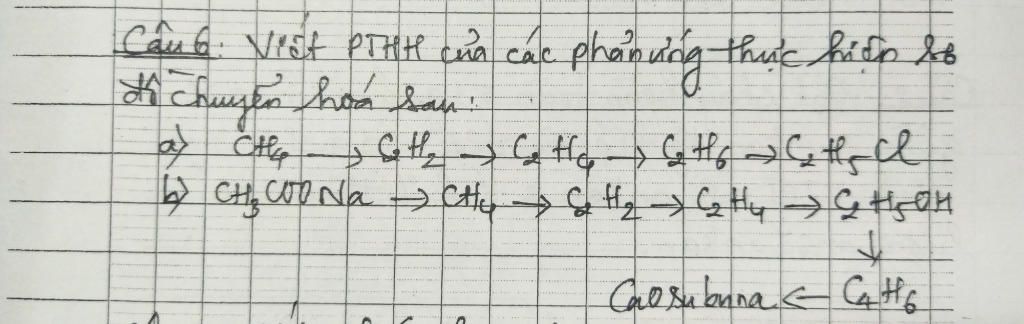 Câu 6: Viết PTHH của các phản ứng thực hiện sơ
đồ chuyển hoá sau:
a) CH4 → C2H2 → C2H4 → C2H6 → C2H5Cl
b) CH3COONa → CH4 → C2H2 → C2H4 → C2H5OH
↓
Cao su buna ← C4H6